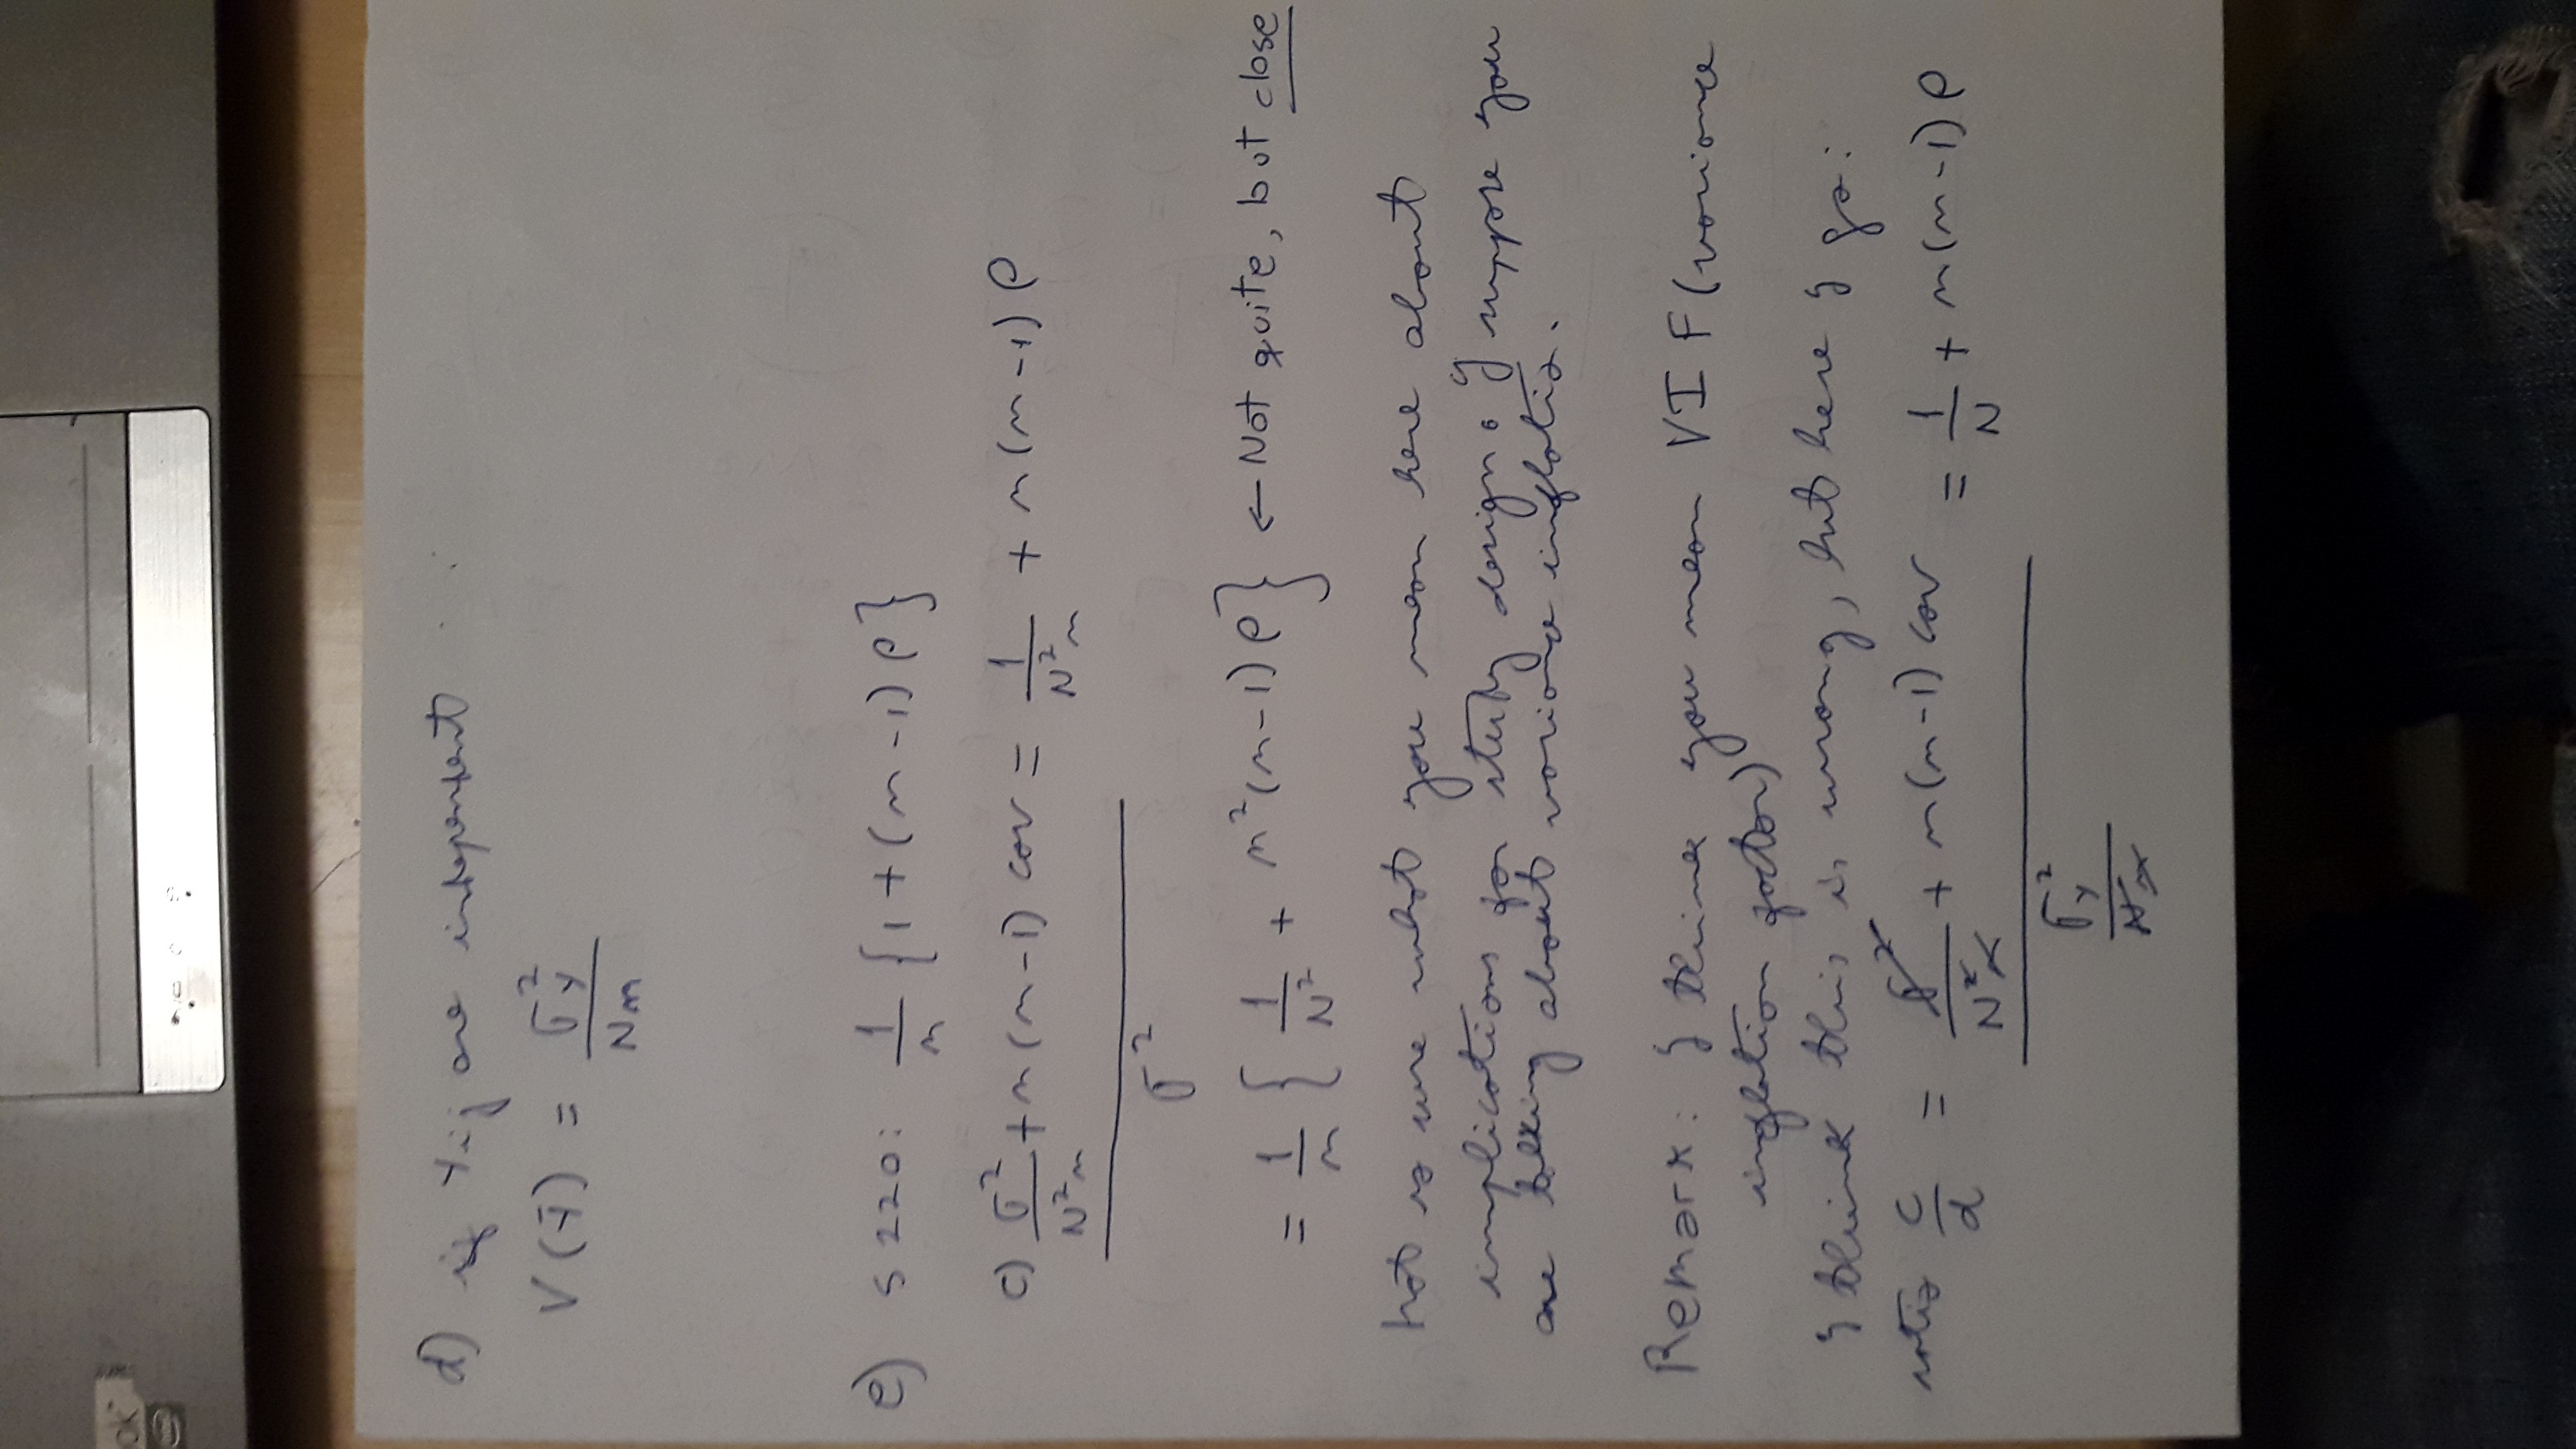 d) if Yij are independent
V(Ȳ) = σ²y / Nn
e) S 220: 1/n {1 + (n-1) ρ}
c) σ²/N²n + n(n-1) cov / σ² = 1/N²n + n(n-1) ρ
= 1/n { 1/N² + n²(n-1) ρ} ← Not quite, but close
Not so sure what you mean here about
implications for study design. I suppose you
are talking about variance inflatio.
Remark: I thinne you mean VIF (variance
inflation factor)
I think this is wrong, but here I go:
ratio c/d = σ²/N²n + n(n-1) cov / σ²y/Nn = 1/N + n(n-1) ρ